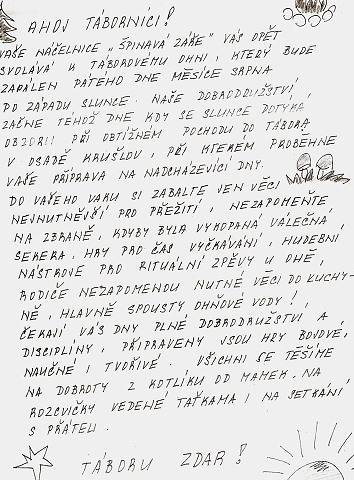 AHOJ TÁBORNÍCI!
VAŠE NÁČELNICE „ŠPINAVÁ ZÁŘE" VÁS OPĚT
SVOLÁVÁ K TÁBOROVÉMU OHNI, KTERÝ BUDE
ZAPÁLEN PÁTÉHO DNE MĚSÍCE SRPNA
PO ZÁPADU SLUNCE. NAŠE DOBRODRUŽSTVÍ
ZAČNE TÉHOŽ DNE KDY SE SLUNCE DOTÝKÁ
OBZORU PŘI OBTÍŽNÉM POCHODU DO TÁBORA
V OSADĚ KRUŠLOV, PŘI KTERÉM PROBĚHNE
VAŠE PŘÍPRAVA NA NADCHÁZEJÍCÍ DNY.
DO VAŠEHO VAKU SI ZABALTE JEN VĚCI
NEJNUTNĚJŠÍ PRO PŘEŽITÍ, NEZAPOMEŇTE
NA ZBRANĚ, KDYBY BYLA VYKOPANÁ VÁLEČNÁ
SEKERA, HRY PRO ČAS VYČKÁVÁNÍ, HUDEBNÍ
NÁSTROJE PRO RITUÁLNÍ ZPĚVY U OHNĚ,
RODIČE NEZAPOMENOU NUTNÉ VĚCI DO KUCHY-
NĚ, HLAVNĚ SPOUSTY OHŇOVÉ VODY!,
ČEKAJÍ VÁS DNY PLNÉ DOBRODRUŽSTVÍ A
DISCIPLÍNY, PŘIPRAVENY JSOU HRY BOJOVÉ,
NAUČNÉ I TVOŘIVÉ. VŠICHNI SE TĚŠÍME
NA DOBROTY Z KOTLÍKU OD MAMEK, NA
ROZCVIČKY VEDENÉ TAŤKAMA I NA SETKÁNÍ
S PŘÁTELI.
TÁBORU ZDAR!